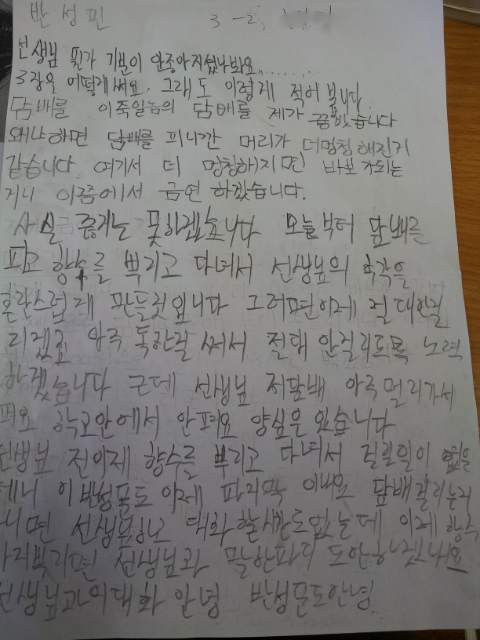 반성민 3-2
선생님 뭔가 기분이 안좋아지셨나봐요.......
3장은 어떻게써요. 그래도 이렇게 적어 봅니다
담배를 이죽일놈의 담배를 제가 끊겠습니다
왜냐하면 담배를 피니깐 머리가 더멍청해진거
같습니다. 여기서 더 멍청하지면 바보 되는
거니 이쯤에서 금연 하겠습니다.
사실 끊게는 못하겠습니다 오늘부터 담배를
피고 향수를 뿌리고 다녀서 선생님의 후각을
혼란스럽게 만들것입니다 그러면이제 절대안걸
리겠죠 아주 독한걸 써서 절대 안걸리도록 노력
하겠습니다 근데 선생님 저담배 아주멀리가서
펴요 학교안에서 안펴요 양심은 있습니다
선생님 전이제 향수를 뿌리고 다녀서 걸릴일이 없을
테니 이 반성문도 이제 마지막 이네요 담배걸리는거
아니면 선생님하고 대화할시간도없는데 이제 향수
뿌리면 선생님과 말한마디 도안하겠네요
선생님과의대화 안녕 반성문도안녕